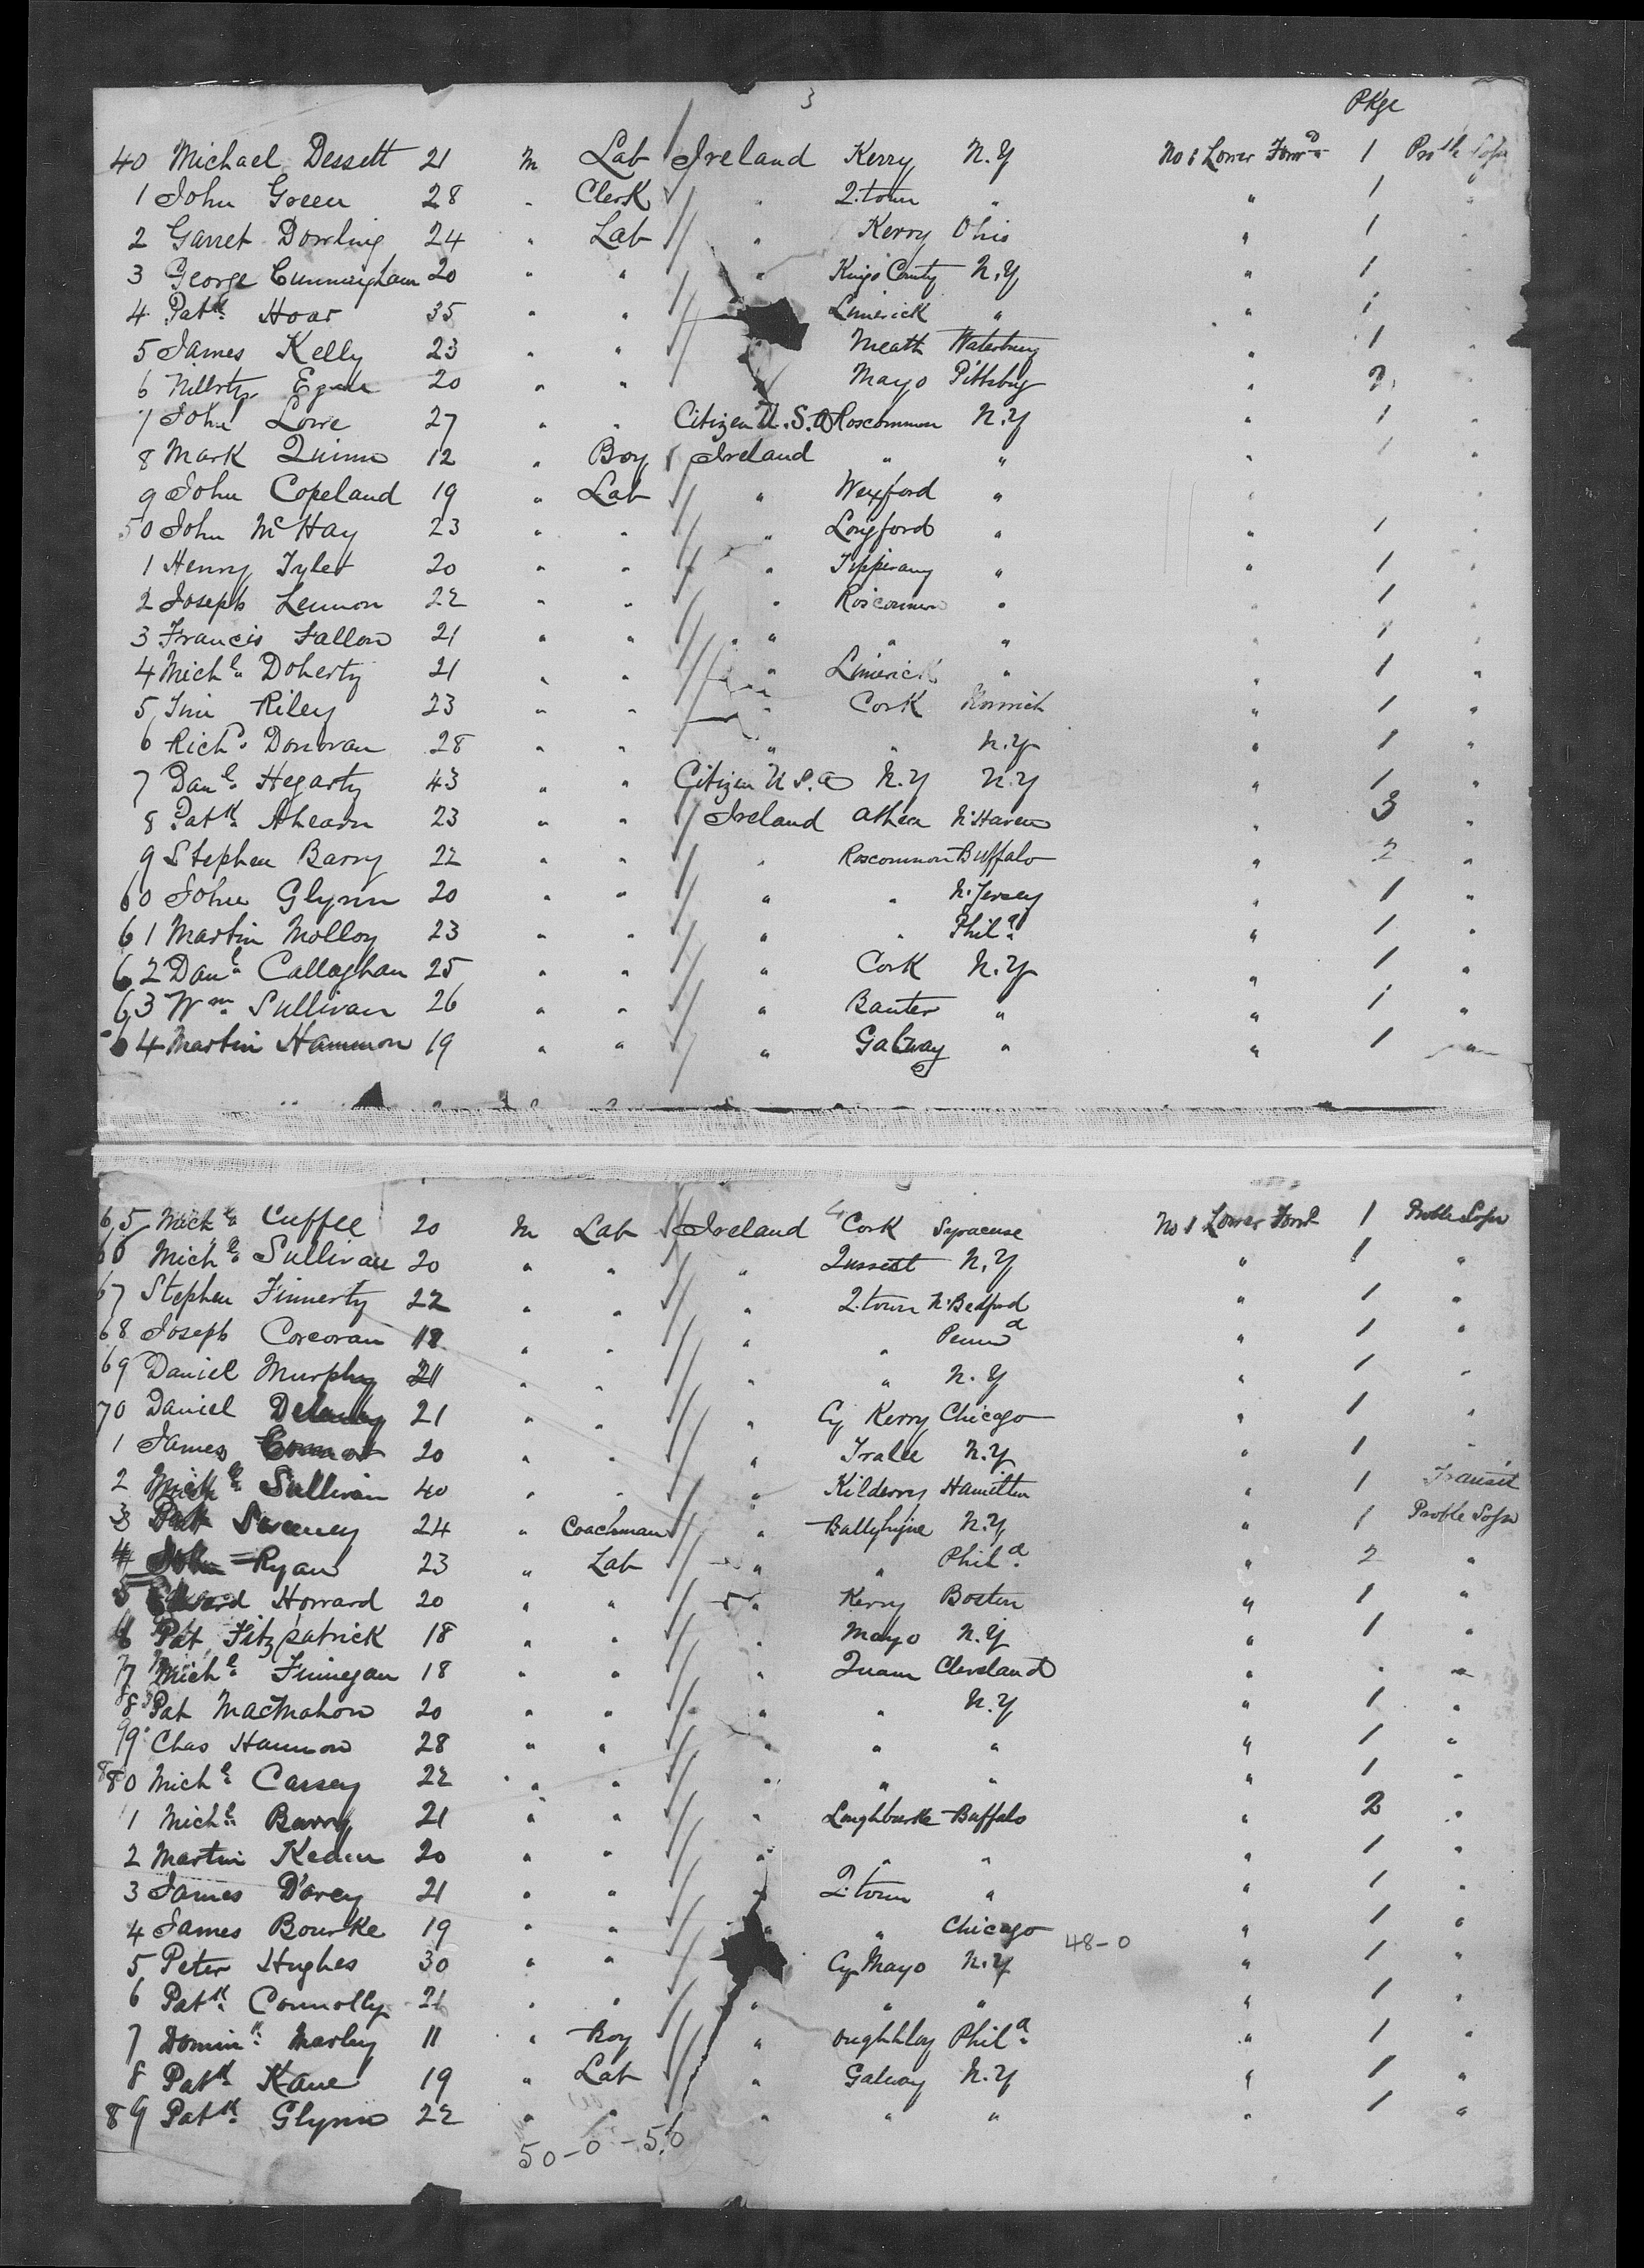 3
Pkge
40 Michael Dessett 21 m Lab Ireland Kerry N.Y No 1 Lower Forwd 1 Proble Sojn
1 John Green 28 " Clerk " Q.town " " 1 "
2 Garret Dowling 24 " Lab " Kerry Ohio " 1 "
3 George Cunningham 20 " " " Kings County N.Y " 1 "
4 Patk Hoar 35 " " Limerick " " 1 "
5 James Kelly 23 " " " Meath Waterbury " 1 "
6 Egan 20 " " " Mayo Pittsbug " "
7 John Lowe 27 " " Citizen U.S.A Roscommon N.Y " 1 "
8 Mark Quinn 12 " Boy Ireland " " " 1 "
9 John Copeland 19 " Lab " Wexford " "
50 John McHay 23 " " " Longford " " 1 "
1 Henry Tyler 20 " " " Tipperary " " 1 "
2 Joseph Lennon 22 " " " Roscommon " " 1 "
3 Francis Fallon 21 " " " " " " 1 "
4 Michl Doherty 21 " " " Limerick " " 1 "
5 Tim Riley 23 " " " Cork Norwich " 1 "
6 Richd Donovan 28 " " " " N.Y " 1 "
7 Danl Hegarty 43 " " Citizen U.S.A N.Y N.Y " 1 "
8 Patk Ahearn 23 " " Ireland Athea N.Haven " 3 "
9 Stephen Barry 22 " " " Roscommon Buffalo " 2 "
60 John Glynn 20 " " " " N.Jersey " 1 "
61 Martin Molloy 23 " " " " Phila " 1 "
62 Danl Callaghan 25 " " " Cork N.Y " 1 "
63 Wm Sullivan 26 " " " Banter " " 1 "
64 Martin Hammon 19 " " " Galway " " 1 "
4
65 Michl Cuffee 20 m Lab Ireland Cork Syracuse No 1 Lower Forwd 1 Proble Sojn
66 Michl Sullivan 20 " " " N.Y " 1 "
67 Stephen Finnerty 22 " " " Q.town N.Bedford " 1 "
68 Joseph Corcoran 18 " " " " Penna " 1 "
69 Daniel Murphy 21 " " " " N.Y " 1 "
70 Daniel Delaney 21 " " " Cy Kerry Chicago " 1 "
1 James Connor 20 " " " Tralee N.Y " 1 "
2 Michl Sullivan 40 " " " Kilderry Hamilton " 1 Transit
3 Pat Sweeney 24 " Coachman " N.Y " 1 Proble Sojn
4 John Ryan 23 " Lab " " Phila " 2 "
5 Edward Howard 20 " " " Kerry Boston " 1 "
6 Pat Fitzpatrick 18 " " " Mayo N.Y " 1 "
77 Michl Finnegan 18 " " " Tuam Cleveland " " "
8 Pat MacMahon 20 " " " " N.Y " 1 "
9 Chas Hannon 28 " " " " " " 1 "
80 Michl Cassey 22 " " " " " " 1 "
1 Michl Barry 21 " " " Loughburke Buffalo " 2 "
2 Martin Keaen 20 " " " " " " 1 "
3 James D'arcy 21 " " " Q.town " " 1 "
4 James Bourke 19 " " " " Chicago " 1 "
48-0
5 Peter Hughes 30 " " Cy Mayo N.Y " 1 "
6 Patk Connolly 21 " " " " " " 1 "
7 Domink Marley 11 " Boy " Phila " 1 "
8 Patk Kane 19 " Lab " Galway N.Y " 1 "
89 Patk Glynn 22 " " " " " " 1 "
50-0-50